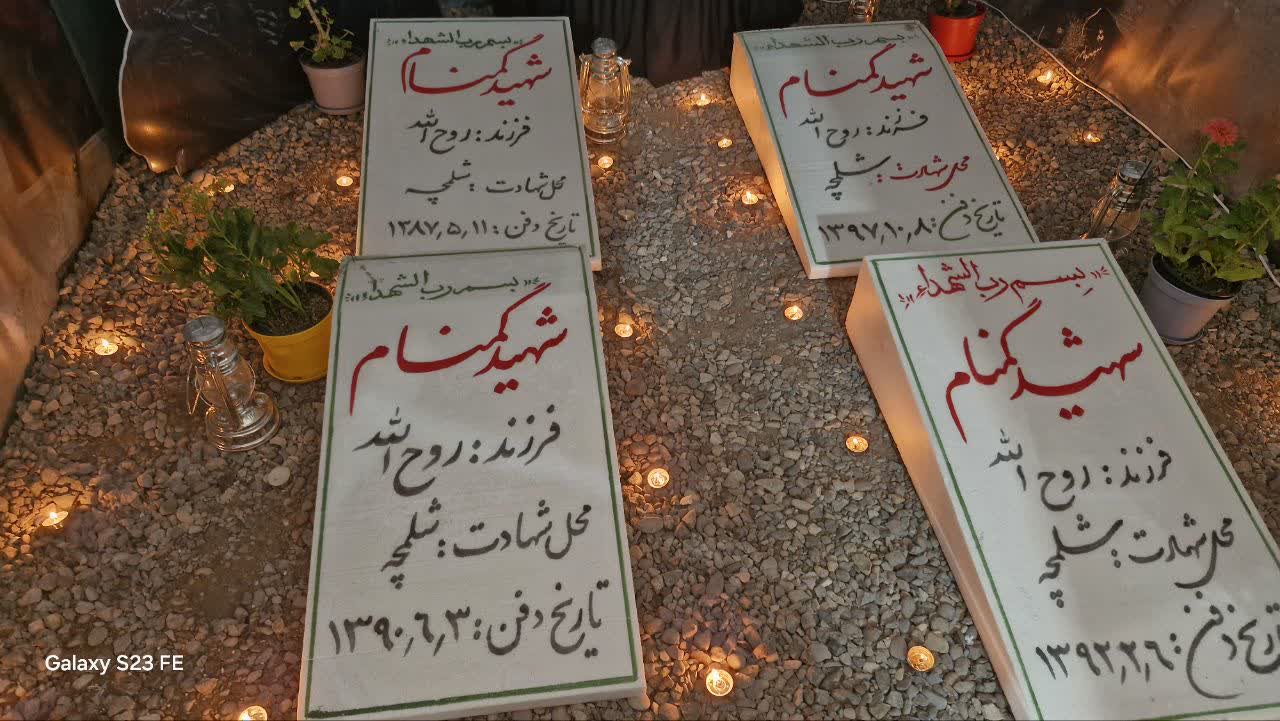 بسم رب الشهداء
شهید گمنام
فرزند: روح الله
محل شهادت: شلمچه
تاریخ دفن: ۱۳۸۷٫۵٫۱۱
بسم رب الشهداء
شهید گمنام
فرزند: روح الله
محل شهادت: شلمچه
تاریخ دفن: ۱۳۹۷٫۱۰٫۸
"بسم رب الشهداء"
شهید گمنام
فرزند: روح الله
محل شهادت: شلمچه
تاریخ دفن: ۱۳۹۰٫۶٫۳
"بسم رب الشهداء"
شهید گمنام
فرزند: روح الله
محل شهادت: شلمچه
تاریخ دفن:
Galaxy S23 FE